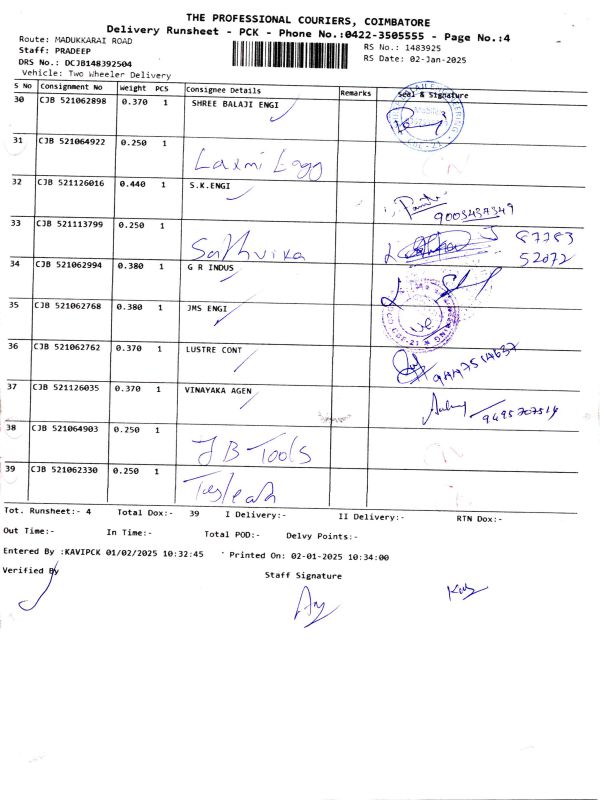 THE PROFESSIONAL COURIERS, COIMBATORE
Delivery Runsheet - PCK - Phone No.:0422-3505555 - Page No.:4
Route: MADUKKARAI ROAD
RS No.: 1483925
Staff: PRADEEP
RS Date: 02-Jan-2025
DRS No.: DCJB148392504
Vehicle: Two Wheeler Delivery
S No Consignment No Weight PCS Consignee Details Remarks Seal & Signature
30 CJB 521062898 0.370 1 SHREE BALAJI ENGI
31 CJB 521064922 0.250 1
Laxmi Engg
32 CJB 521126016 0.440 1 S.K.ENGI
9003437349
33 CJB 521113799 0.250 1
Sathvika
87783
52072
34 CJB 521062994 0.380 1 G R INDUS
35 CJB 521062768 0.380 1 JMS ENGI
36 CJB 521062762 0.370 1 LUSTRE CONT
37 CJB 521126035 0.370 1 VINAYAKA AGEN
38 CJB 521064903 0.250 1
J B Tools
39 CJB 521062330 0.250 1
Tot. Runsheet:- 4 Total Dox:- 39 I Delivery:- II Delivery:- RTN Dox:-
Out Time:- In Time:- Total POD:- Delvy Points:-
Entered By :KAVIPCK 01/02/2025 10:32:45 Printed On: 02-01-2025 10:34:00
Verified By
Staff Signature